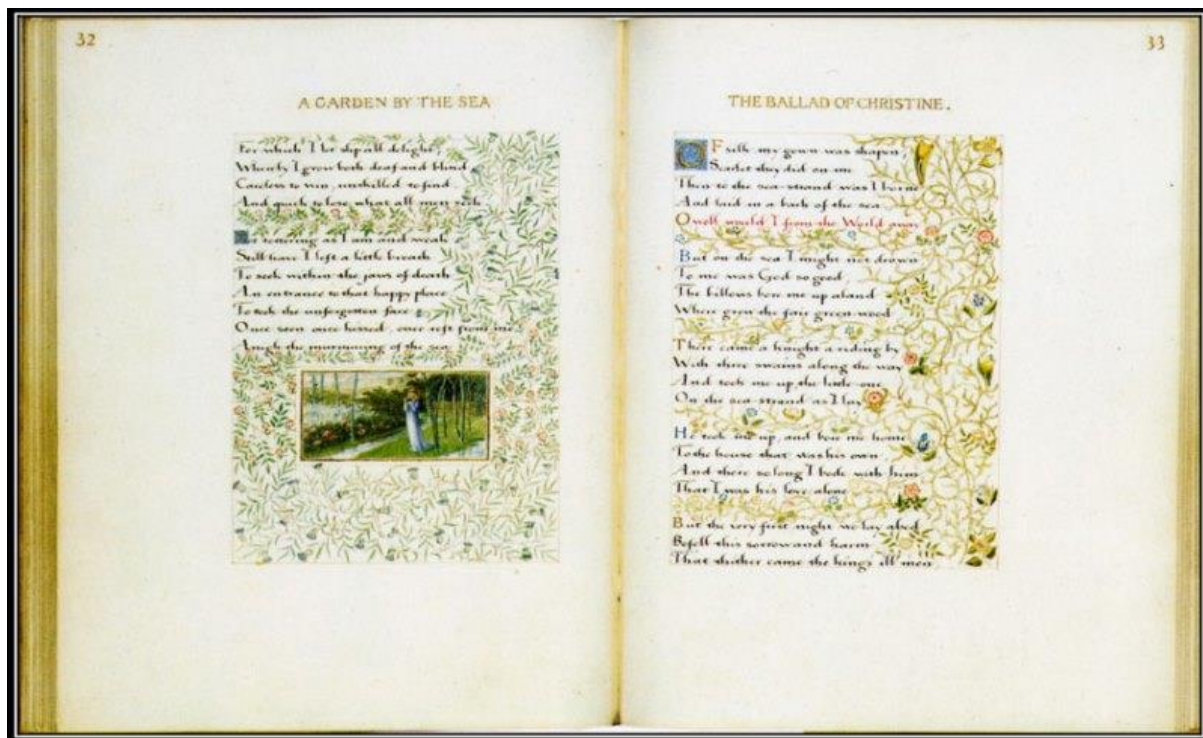 32
A GARDEN BY THE SEA
For which I let slip all delight,
Whereby I grow both deaf and blind
Careless to win, unskilled to find
And quick to lose what all men seek
Yet tottering as I am and weak
Still have I left a little breath
To seek within the jaws of death
An entrance to that happy place
To seek the unforgotten face
Once seen once kissed, once reft from me
Anigh the murmuring of the sea
33
THE BALLAD OF CHRISTINE.
OF silk my gown was shapen,
Scarlet they did on me
Then to the sea-strand was I borne
And laid in a bark of the sea
O well would I from the World away
But on the sea I might not drown
To me was God so good,
The billows bore me up aland
Where grew the fair green-wood
There came a knight a riding by
With three swains along the way
And took me up the little one
On the sea-strand as I lay
He took me up, and bore me home
To the house that was his own
And there so long I bode with him
That I was his love alone
But the very first night we lay abed
Befell this sorrow and harm
That thither came the kings ill men